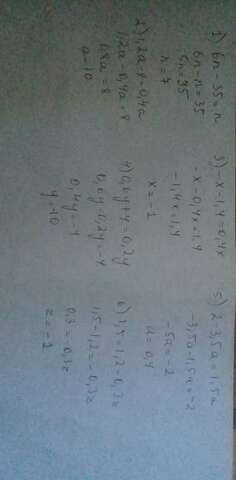 1) 6n-35=n
6n-n=35
5n=35
n=7
2) 1,2a-8=0,4a
1,2a-0,4a=8
0,8a=8
a=10
3) -x-1,4=0,4x
-x-0,4x=1,4
-1,4x=1,4
x=-1
4) 0,6y+4=0,2y
0,6y-0,2y=-4
0,4y=-4
y=-10
5) 2-3,5a=1,5a
-3,5a-1,5a=-2
-5a=-2
a=0,4
6) 1,5=1,2-0,3z
1,5-1,2=-0,3z
0,3=-0,3z
z=-1